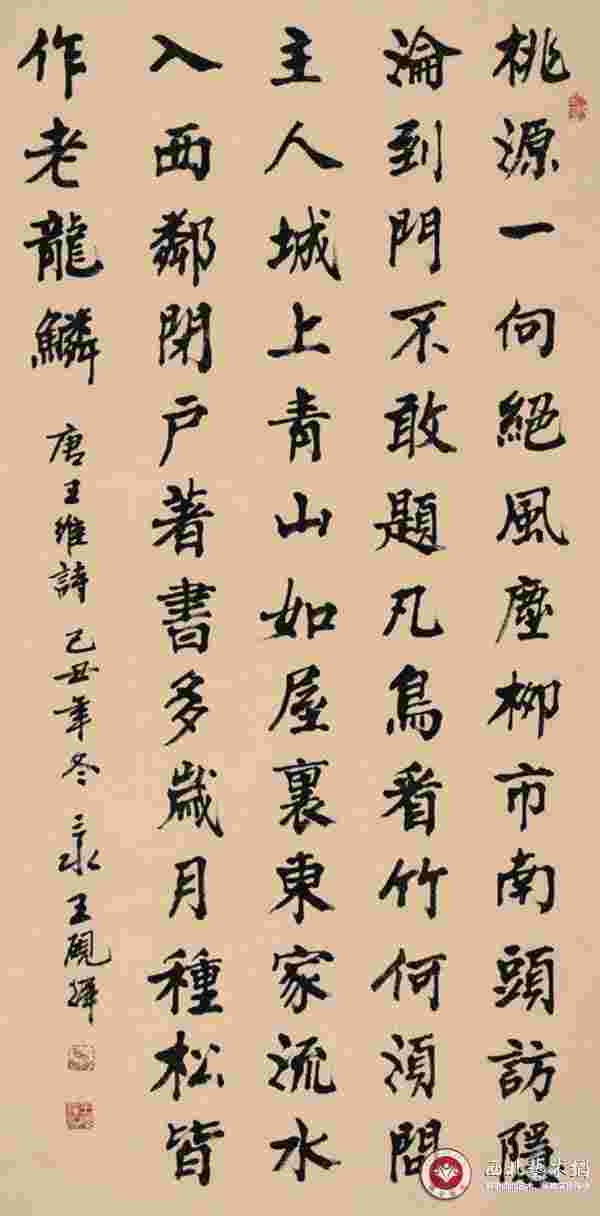 桃源一向絕風塵柳市南頭訪隱
淪到門不敢題凡鳥看竹何須問
主人城上青山如屋裏東家流水
入西鄰閉户著書多歲月種松皆
作老龍鱗
唐王維詩 己丑年冬 王
西北藝术